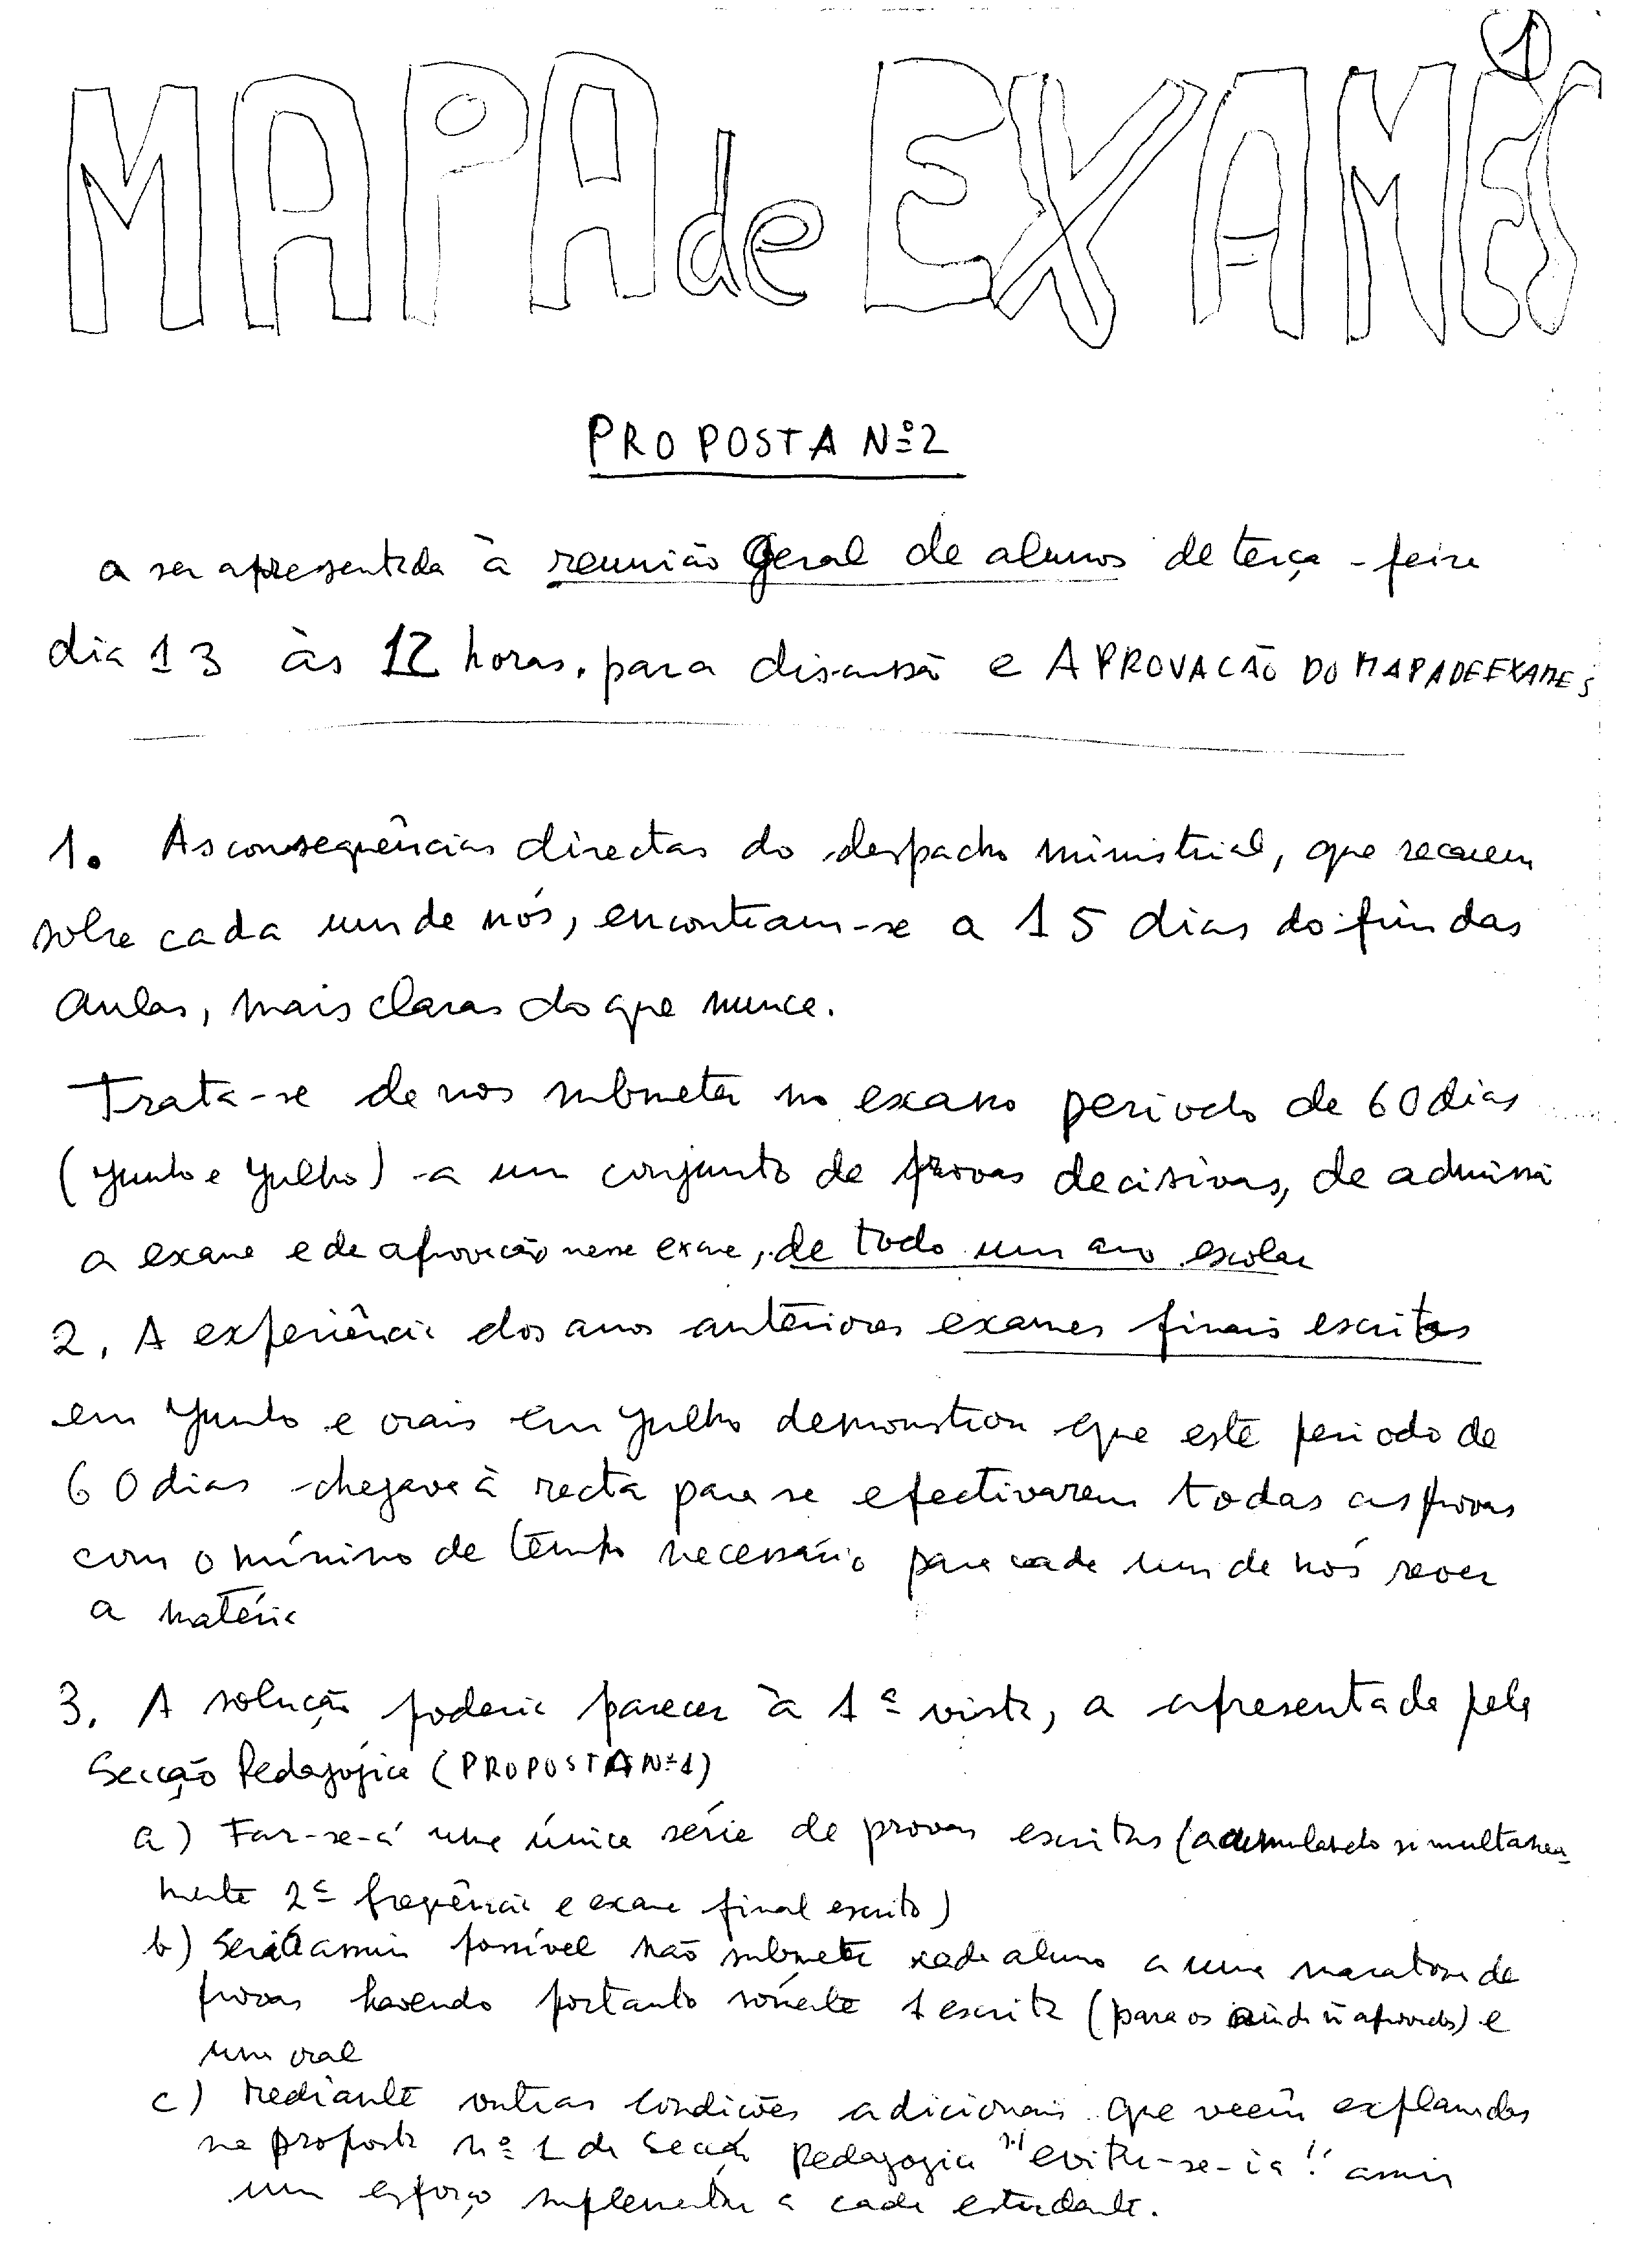 1
MAPA de EXAMES
PROPOSTA Nº2
a ser apresentada à reunião Geral de alunos de terça-feira
dia 13 às 12 horas, para discussão e APROVAÇÃO DO MAPA DE EXAMES
1. As consequências directas do despacho ministrial, que recaem
sobre cada um de nós, encontram-se a 15 dias do fim das
aulas, mais claras do que nunca.
Trata-se de nos submeter no exacto periodo de 60 dias
(Junho e Julho) a um conjunto de provas decisivas, de admissão
a exame e de aprovação nesse exame, de todo um ano escolar
2. A experiência dos anos anteriores exames finais escritos
em Junho e orais em Julho demonstrou que este periodo de
60 dias chegava à recta para se efectivarem todas as provas
com o mínimo de tempo necessário para cada um de nós rever
a matéria
3. A solução poderia parecer à 1ª vista, a apresentada pela
Secção Pedagógica (PROPOSTA Nº1)
a) Far-se-á uma única série de provas escritas (acumulando simultanea-
mente 2ª frequência e exame final escrito)
b) Seria assim possível não submeter cada aluno a uma maratona de
provas havendo portanto sómente 1 escrita (para os ainda ñ aprovados) e
uma oral
c) Mediante outras condições adicionais que veem explanadas
na proposta nº 1 da Secção Pedagogica "evitar-se-ia" assim
um esforço suplementar a cada estudante.